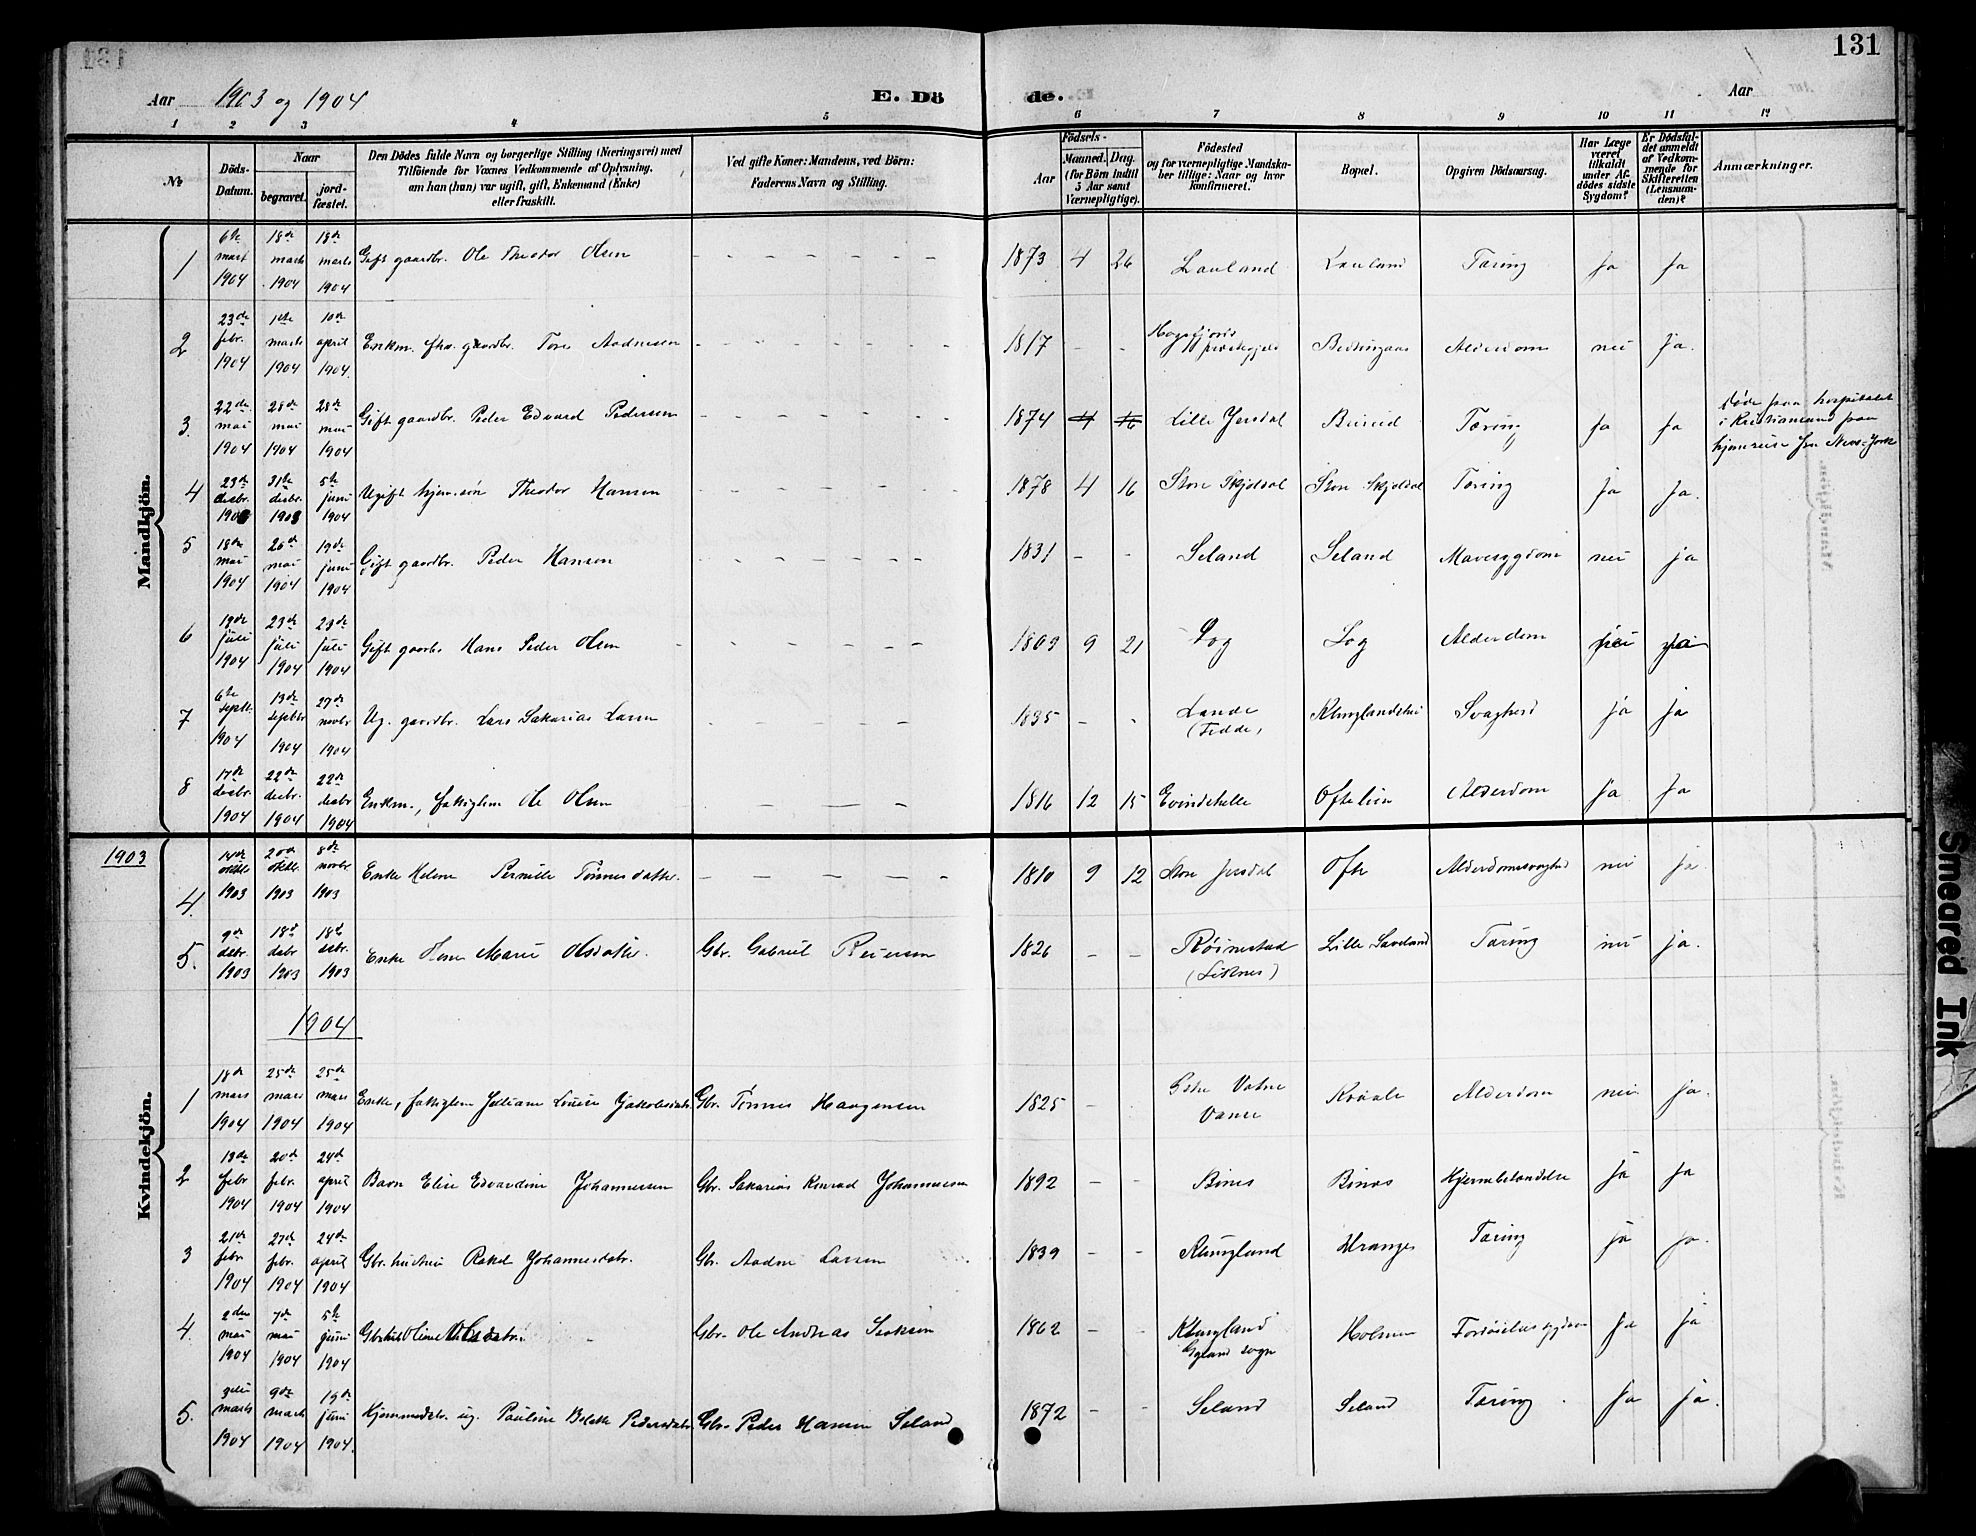 131
Aar 1903 og 1904 E. Döde. Aar
1 2 3 4 5 6 7 8 9 10 11 12
№
Döds-Datum.
Naar
begravet.
jordfæstet.
Den Dödes fulde Navn og borgerlige Stilling (Næringsvei) med
Tilföiende for Voxnes Vedkommende af Oplysning,
om han (hun) var ugift, gift, Enkemand (Enke)
eller fraskilt.
Ved gifte Koner: Mandens, ved Börn:
Faderens Navn og Stilling.
Aar
Födsels-
Maaned. Dag.
(for Börn indtil
5 Aar samt
Værnepligtige).
Födested
og for værnepligtige Mandskaber tillige: Naar og hvor
konfirmeret.
Bopæl.
Opgiven Dödsaarsag.
Har Læge
været
tilkaldt
under Afdödes sidste
Sygdom?
Er Dödsfaldet anmeldt
af Vedkommende for
Skifteretten
(Lensmanden)?
Anmærkninger.
Mandkjön.
1 6te mars 1904 18de mars 1904 18de marts 1904 Gift gaardbr. Ole Theodor Olsen - - - - - - 1873 4 26 Lauland Lauland Tæring ja ja
2 23de febr. 1904 1ste marts 1904 10de april 1904 Enkm. fhv. gaardbr. Tore Aadnesen - - - - - - 1817 - - præstegjeld Alderdom nei ja.
3. 22de mai 1904 28de mai 1904 28de mai 1904 Gift gaardbr. Peder Edvard Pedersen - - - - - - 1874 4 16 Lille Jersdal Tæring ja ja Døde paa hospitalet
i Kristiansand paa
hjemreise fra New-York
4 23de desbr. 1903 31te desbr. 1903 5te juni 1904 Ugift hjem.søn Theodor Hansen - - - - - - 1878 4 16 Store Skjoldal Store Skjoldal Tæring ja ja.
5 18de mai 1904 26de mai 1904 19de juni 1904 Gift gaardbr. Peder Hansen - - - - - - 1831 - - Seland Seland Mavesygdom nei ja
6 19de juli 1904 23de juli 1904 23de juli 1904 Gift gaardbr. Hans Peder Olsen - - - - - - 1803 9 21 Log Log Alderdom
7 6te septb. 1904 13de septbr 1904 27de novbr 1904 Ug. gaardbr. Lars Sakarias Larsen - - - - - - 1835 - - Lande (Fedde) Svaghed ja ja
8 17de desbr. 1904 22de desbr. 1904 22de desbr 1904 Enkm., fattiglem Ole Olsen - - - - - 1816 12 15 Evindehelle Oftelien Alderdom ja ja
Kvindekjön.
1903
4. 14de oktbr. 1903 20de oktbr. 1903 8de novbr 1903 Enke Helene Pernille Tønnesdatter. - - - - - 1810 9 12 Store Jersdal Ofte Alderdomssvaghed nei ja.
5. 9de desbr. 1903 18de desbr 1903 18de desbr. 1903 Enke Marie Olsdatter. Gbr. Gabriel Reiersen 1826 - - Røinestad (Liknes) Lille Lauland Tæring nei ja.
1904
1 18de mars 1904 25de mars 1904 25de mars 1904 Enke, fattiglem Juliane Lovise Jakobsdatr. Gbr. Tønnes Haagensen 1825 - - Østre Vatne Vanse Alderdom nei ja.
2 13de febr 1904 20de febr. 1904 24de april 1904 Barn Elise Edvardine Johannessen Gbr. Sakarias Konrad Johannessen 1892 - - Hjernebetændelse ja ja
3 21de febr. 1904 27de febr. 1904 24de april 1904 Gbr. hustru Rakel Johannesdtr. Gbr. Aadne Larsen 1839 - - Klungland Tæring ja ja.
4. 2den mai 1904 7de mai 1904 5te juni 1904 Gbr. Ole Andreas 1862 - - Klungland Gyland sogn Holmen ja ja
5. marts 1904 9de marts 1904 19de juni 1904. Hjemmedatr. ug. Pauline Bolette Pedersdatr. Gbr. Peder Hansen Seland 1872 - - Seland Seland Tæring ja ja.
Smeared Ink